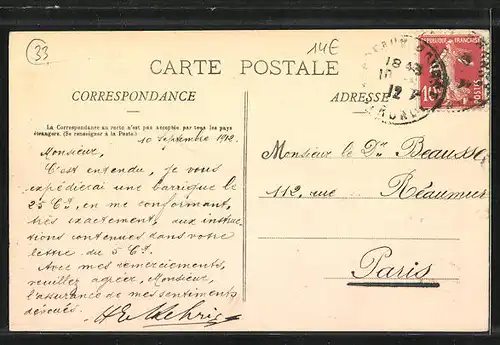 33
14E
CARTE POSTALE
CORRESPONDANCE
ADRESSE
La Correspondance au recto n'est pas acceptée par tous les pays
étrangers. (Se renseigner à la Poste)
10 Septembre 1912.
Monsieur,
C'est entendu, je vous
expédierai une barrique le
25 Ct, en me conformant,
très exactement, aux instruc-
tions contenues dans votre
lettre du 5 Ct.
Avec mes remerciements,
veuillez agréer, Monsieur,
l'assurance de mes sentiments
dévoués.
Monsieur le Dr Beausse
112, rue Réaumur
Paris
REPUBLIQUE FRANÇAISE
10
POSTES
18
12